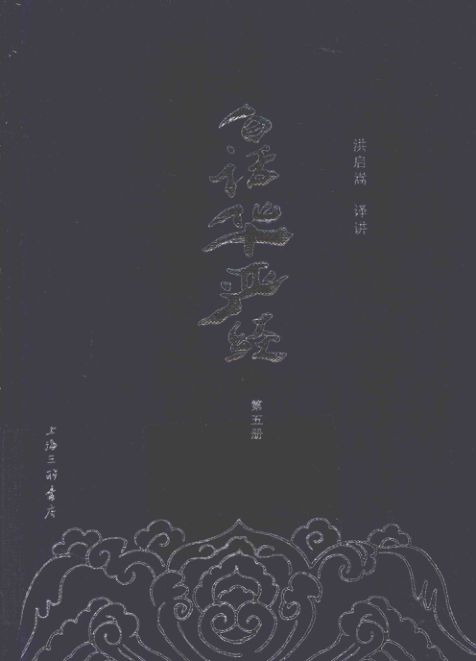 白话华严经
洪启嵩 译讲
第五册
上海三联书店